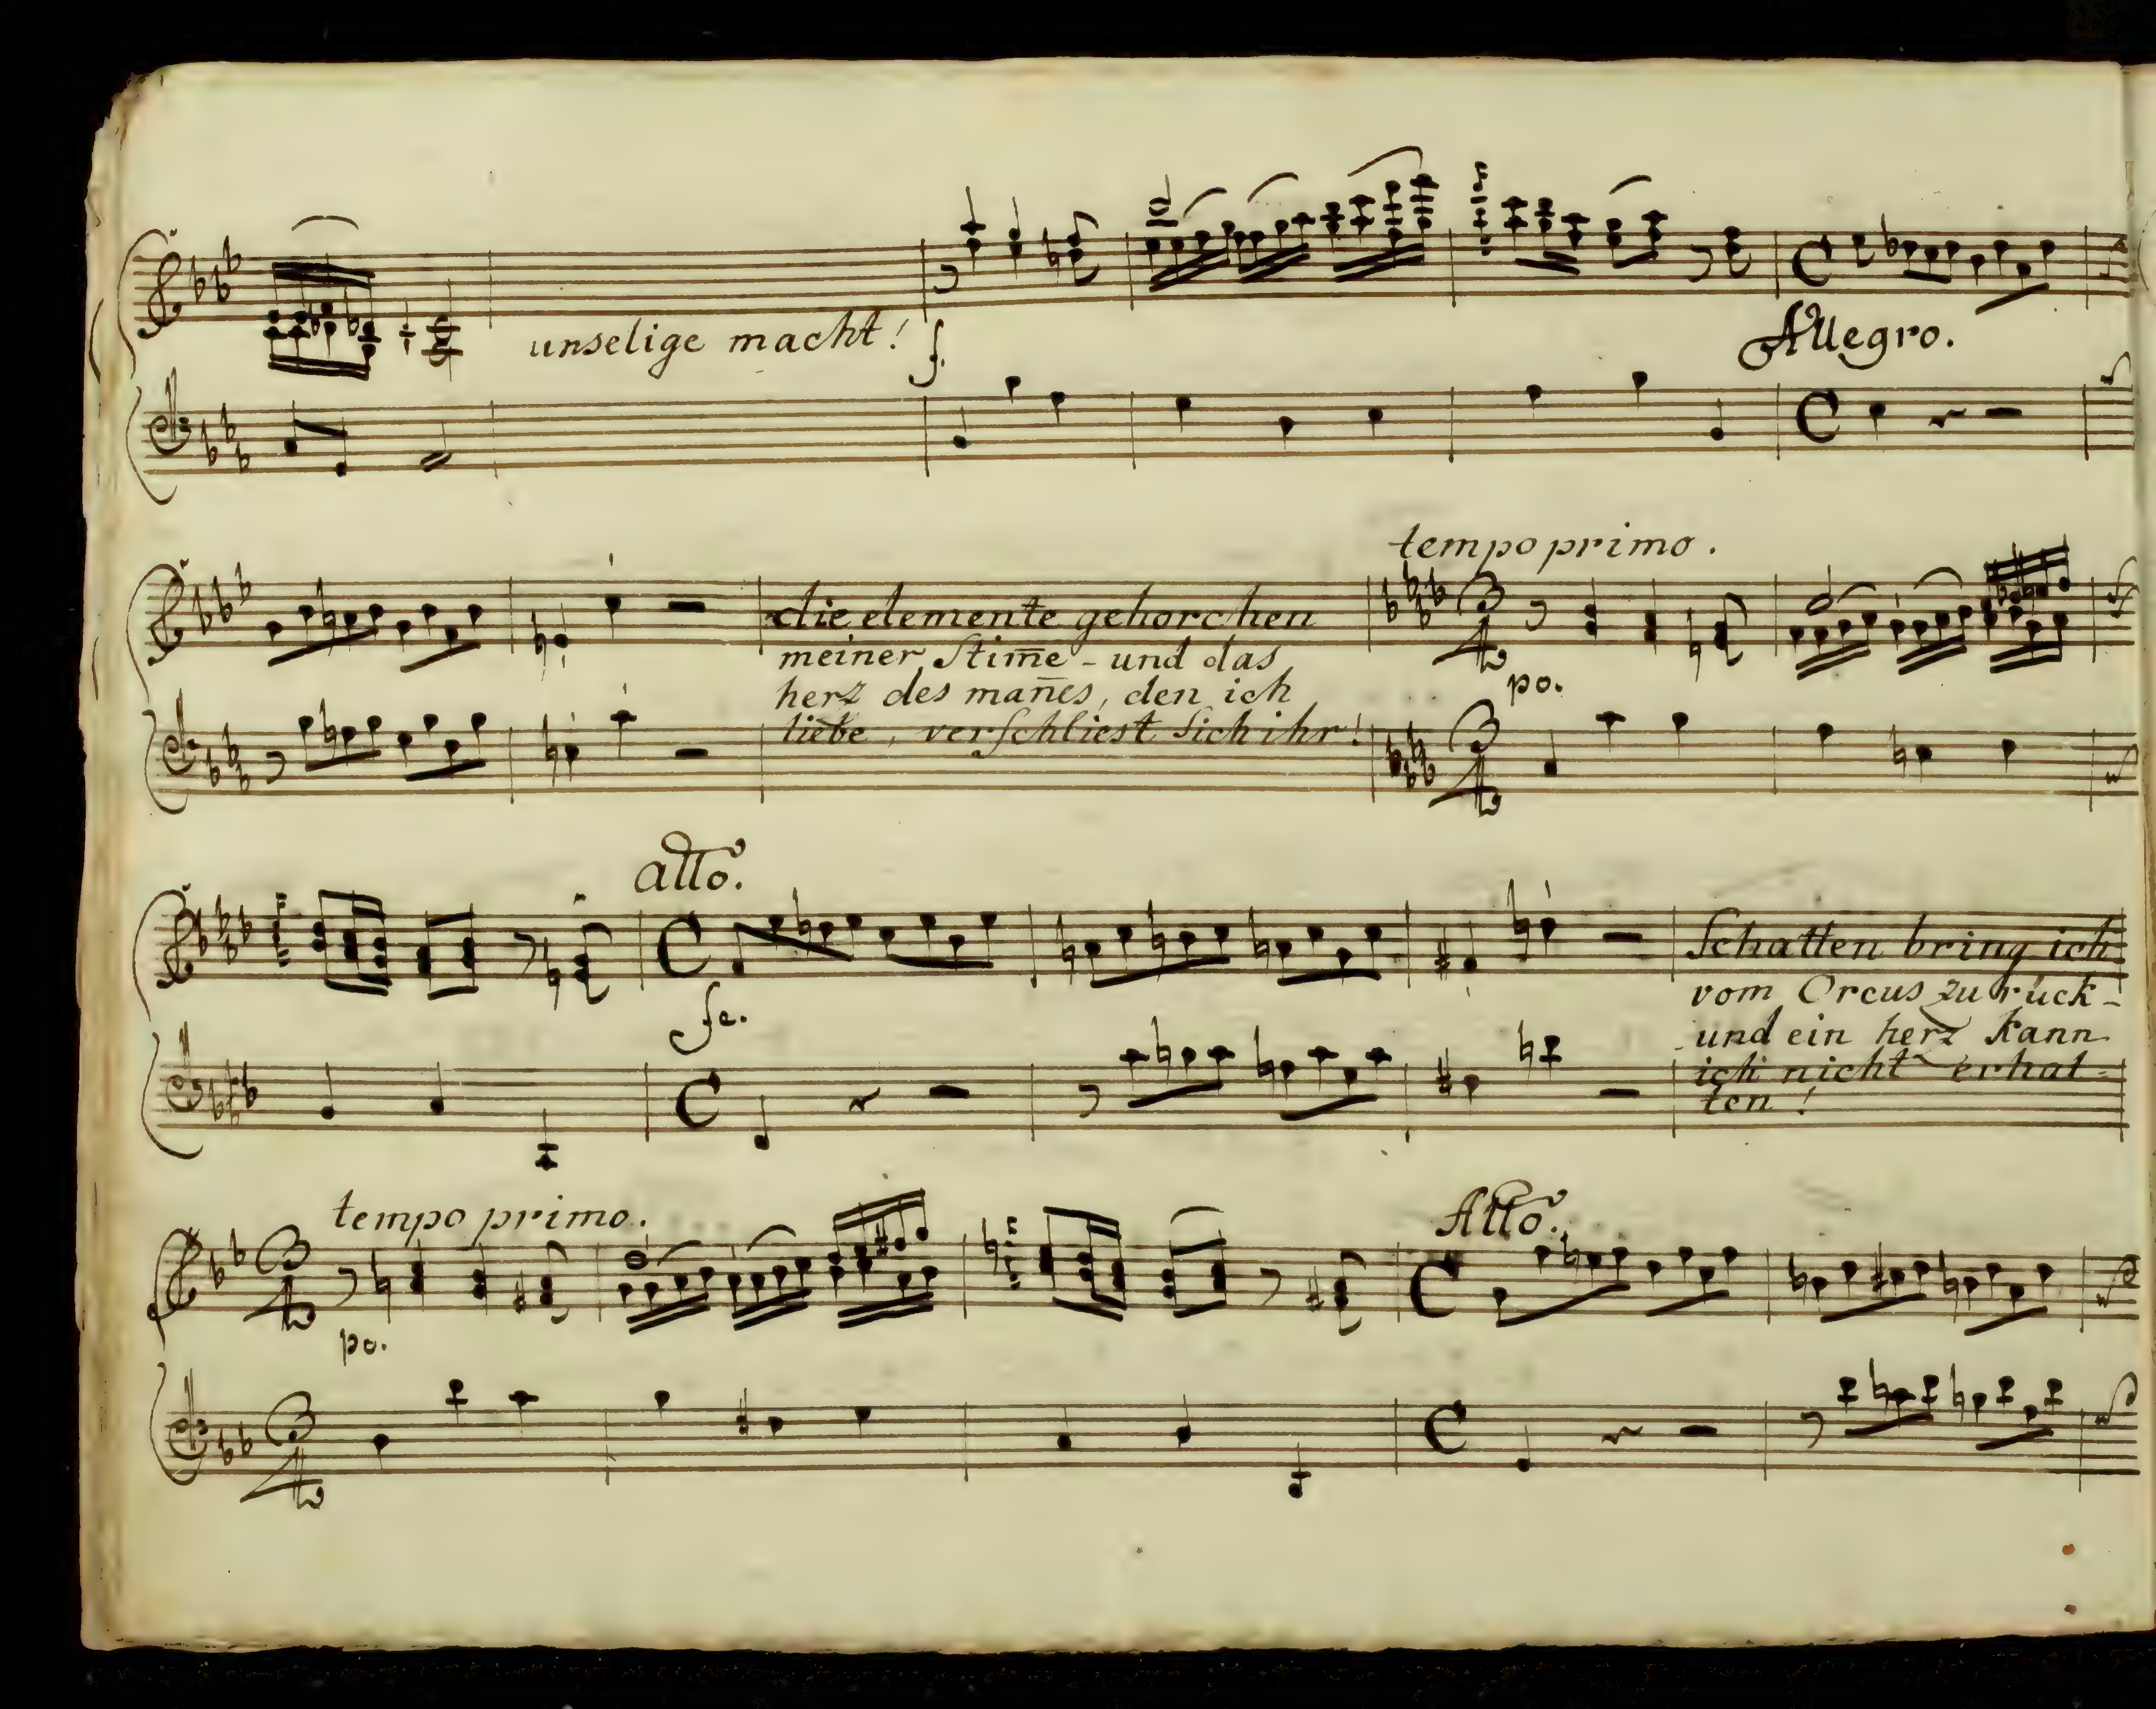 unselige macht!
f.
Allegro.
tempo primo.
die elemente gehorchen
meiner Stim̄e - und das
herz des man̄es, den ich
liebe, verschliest sich ihr!
po.
allo.
fe.
Schatten bring ich
vom Orcus zurück-
und ein herz kann
ich nicht erhal-
ten!
tempo primo.
po.
Allo.